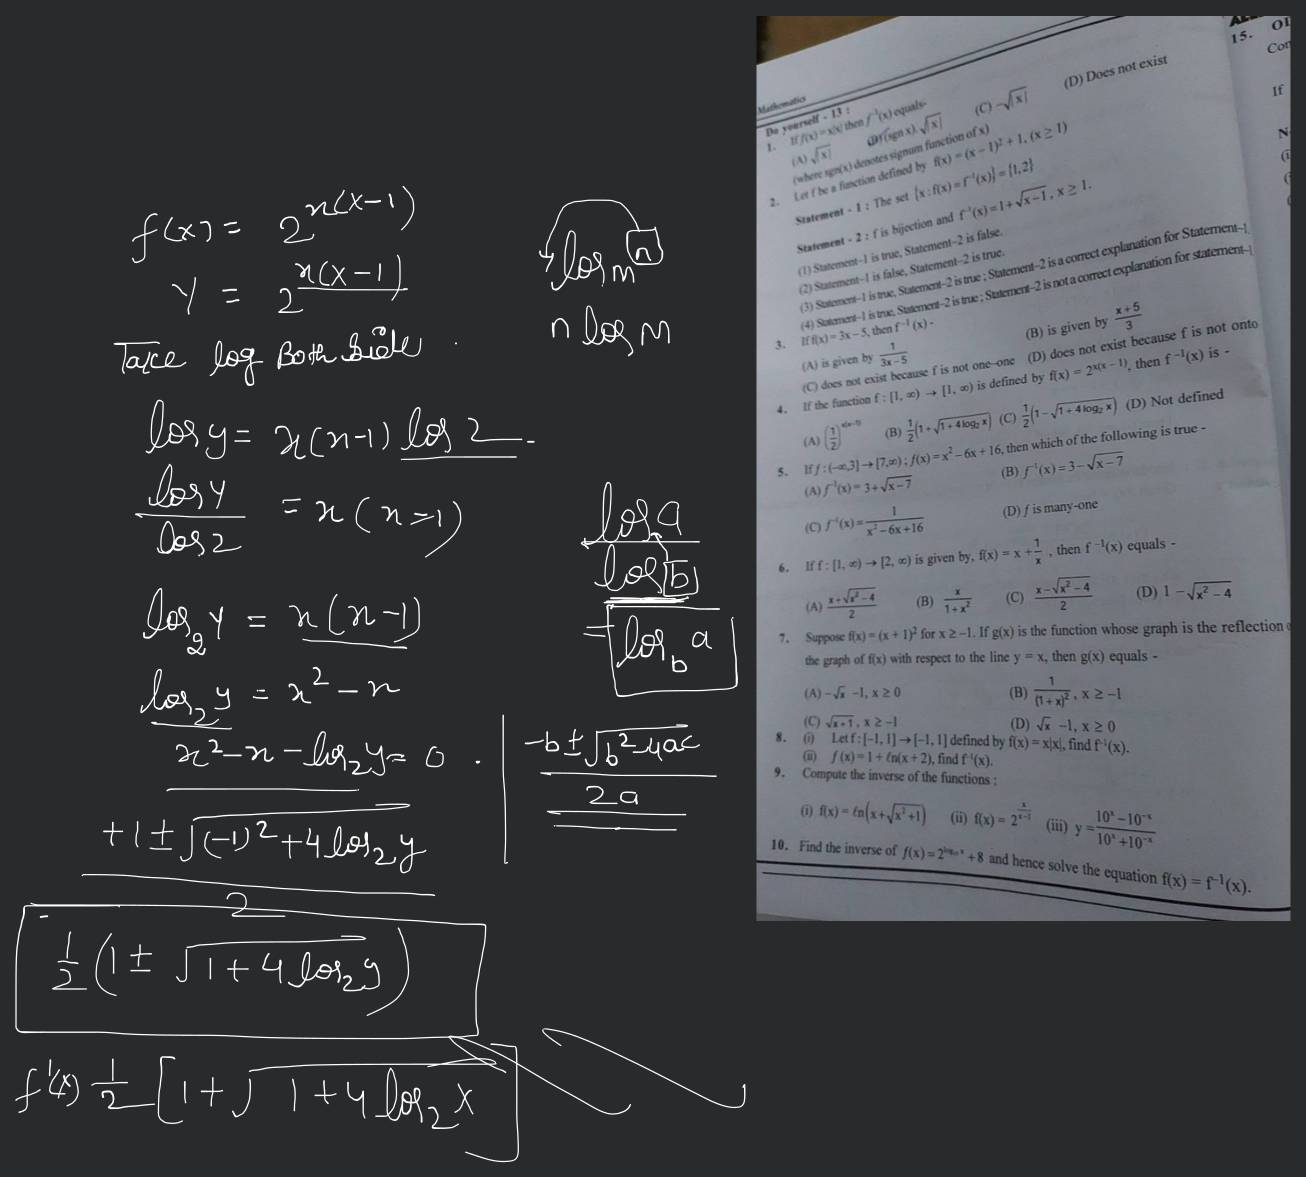 f(x) = 2^{x(x-1)}
y = 2^{x(x-1)}
Take log Both Side.
log y = x(x-1) log 2
log y / log 2 = x(x-1)
log_2 y = x(x-1)
log_2 y = x^2 - x
x^2 - x - log_2 y = 0 .
+1 ± √((-1)^2 + 4 log_2 y) / 2
1/2 (1 ± √(1 + 4 log_2 y))
f^{-1}(x) 1/2 [1 + √(1 + 4 log_2 x)]
log m^n
n log m
log a / log b
= log_b a
-b ± √(b^2 - 4ac) / 2a
Mathematics
Do yourself - 13 :
1. If f(x) = x|x| then f^{-1}(x) equals-
(A) √|x| (B) (sgn x). √|x| (C) -√|x| (D) Does not exist
(where sgn(x) denotes signum function of x)
2. Let f be a function defined by f(x) = (x – 1)² + 1, (x ≥ 1)
Statement - 1 : The set {x : f(x) = f^{-1}(x)} = {1,2}
Statement - 2 : f is bijection and f^{-1}(x) = 1+ √(x–1), x ≥ 1.
(1) Statement–1 is true, Statement–2 is false.
(2) Statement–1 is false, Statement–2 is true.
(3) Statement–1 is true, Statement–2 is true ; Statement–2 is a correct explanation for Statement–1.
(4) Statement–1 is true, Statement–2 is true ; Statement–2 is not a correct explanation for statement–1
3. If f(x) = 3x – 5, then f^{-1}(x) -
(A) is given by 1/(3x – 5) (B) is given by (x + 5)/3
(C) does not exist because f is not one–one (D) does not exist because f is not onto
4. If the function f : [1, ∞) → [1, ∞) is defined by f(x) = 2^{x(x – 1)}, then f^{-1}(x) is -
(A) (1/2)^{x(x–1)} (B) 1/2(1+√(1+4log₂ x)) (C) 1/2(1–√(1+4log₂ x)) (D) Not defined
5. If f : (–∞,3] → [7,∞) ; f(x) = x² – 6x + 16, then which of the following is true -
(A) f^{-1}(x) = 3+√(x–7) (B) f^{-1}(x) = 3–√(x–7)
(C) f^{-1}(x) = 1/(x² – 6x + 16) (D) f is many-one
6. If f : [1, ∞) → [2, ∞) is given by, f(x) = x + 1/x, then f^{-1}(x) equals -
(A) (x + √(x² – 4))/2 (B) x/(1+x²) (C) (x – √(x² – 4))/2 (D) 1 – √(x² – 4)
7. Suppose f(x) = (x + 1)² for x ≥ –1. If g(x) is the function whose graph is the reflection
the graph of f(x) with respect to the line y = x, then g(x) equals -
(A) –√x –1, x ≥ 0 (B) 1/(1 + x)², x ≥ –1
(C) √(x+1), x ≥ –1 (D) √x –1, x ≥ 0
8. (i) Let f : [–1, 1] → [–1, 1] defined by f(x) = x|x|, find f^{-1}(x).
(ii) f(x) = 1 + ℓn(x + 2), find f^{-1}(x).
9. Compute the inverse of the functions :
(i) f(x) = ℓn(x+√(x²+1)) (ii) f(x) = 2^{x/(x–1)} (iii) y = (10^x – 10^{–x})/(10^x + 10^{–x})
10. Find the inverse of f(x) = 2^{log₁₀ x} + 8 and hence solve the equation f(x) = f^{-1}(x).
15.
If